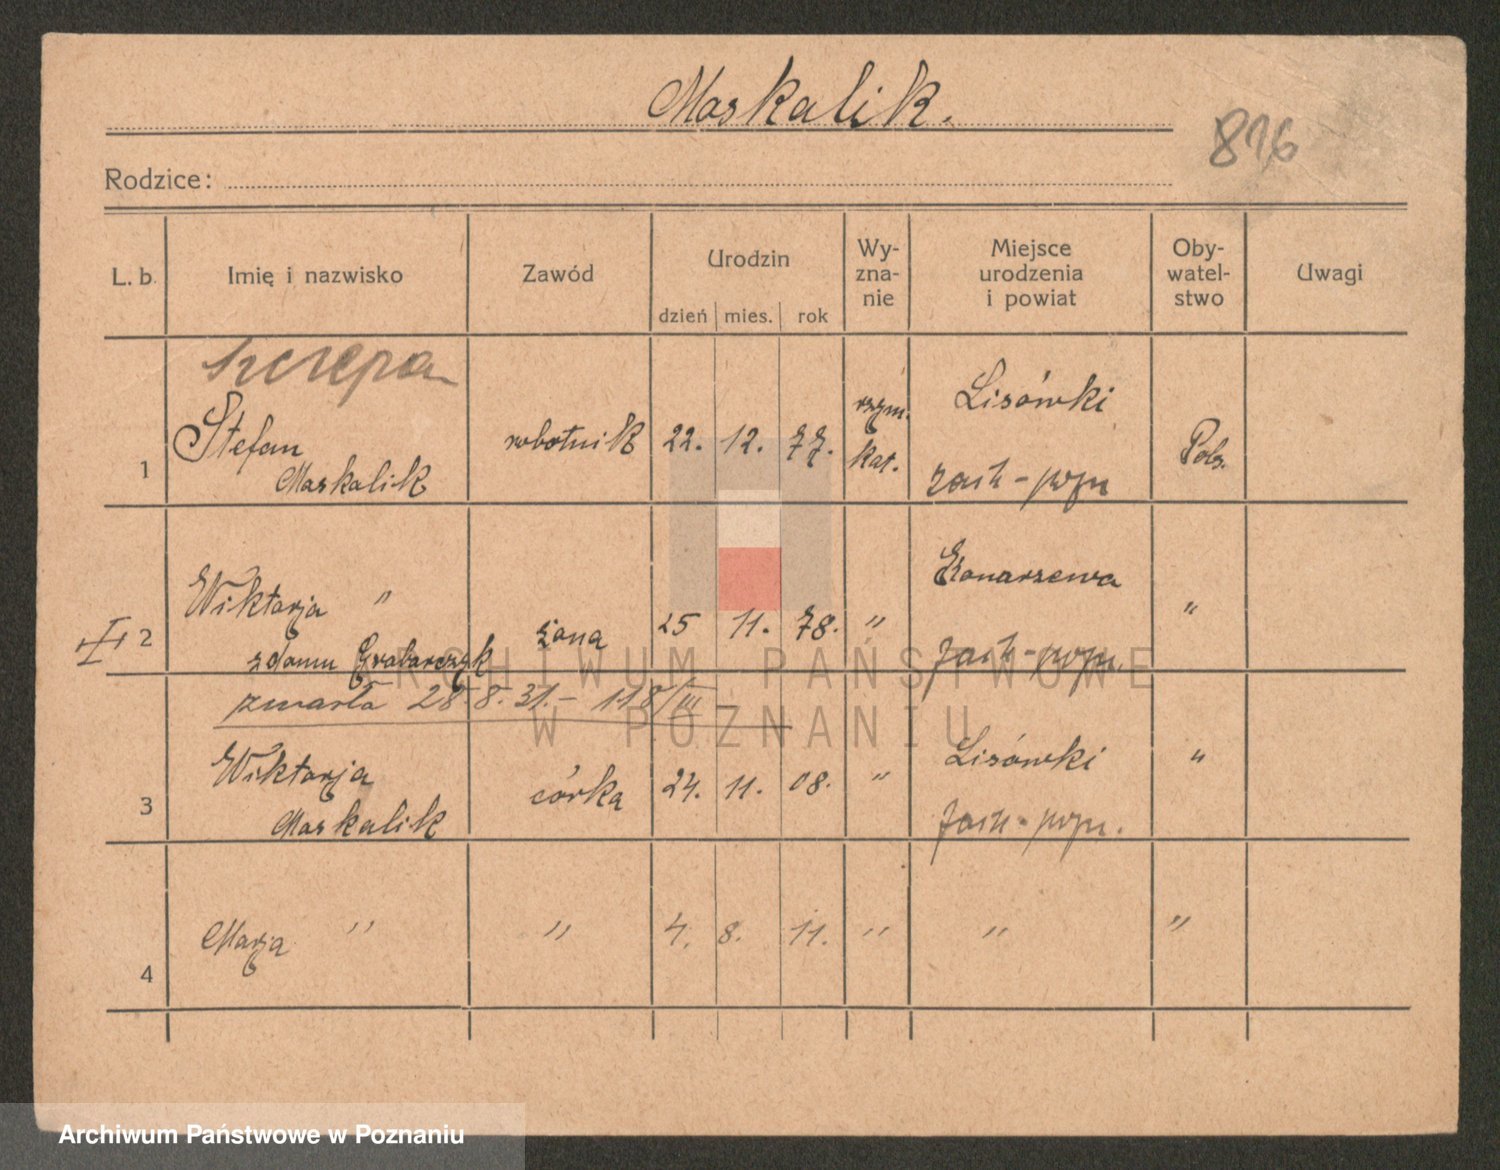 Maskalik.
816
Rodzice:
L. b. Imię i nazwisko Zawód Urodzin Wy-zna-nie Miejsce urodzenia i powiat Oby-watel-stwo Uwagi
dzień mies. rok
Szczepan
1 Stefan Maskalik robotnik 22. 12. 77. rzym. kat. Lisówki Pols.
2 Wiktorja " z domu Grabarczyk żona 25 11. 78. " Konarzewa "
zmarła 28.8.31.- 118/III
3 Wiktorja Maskalik córka 24. 11. 08. " Lisówki "
4 Marja " " 4. 8. 11. " " "
ARCHIWUM PAŃSTWOWE
W POZNANIU
Archiwum Państwowe w Poznaniu